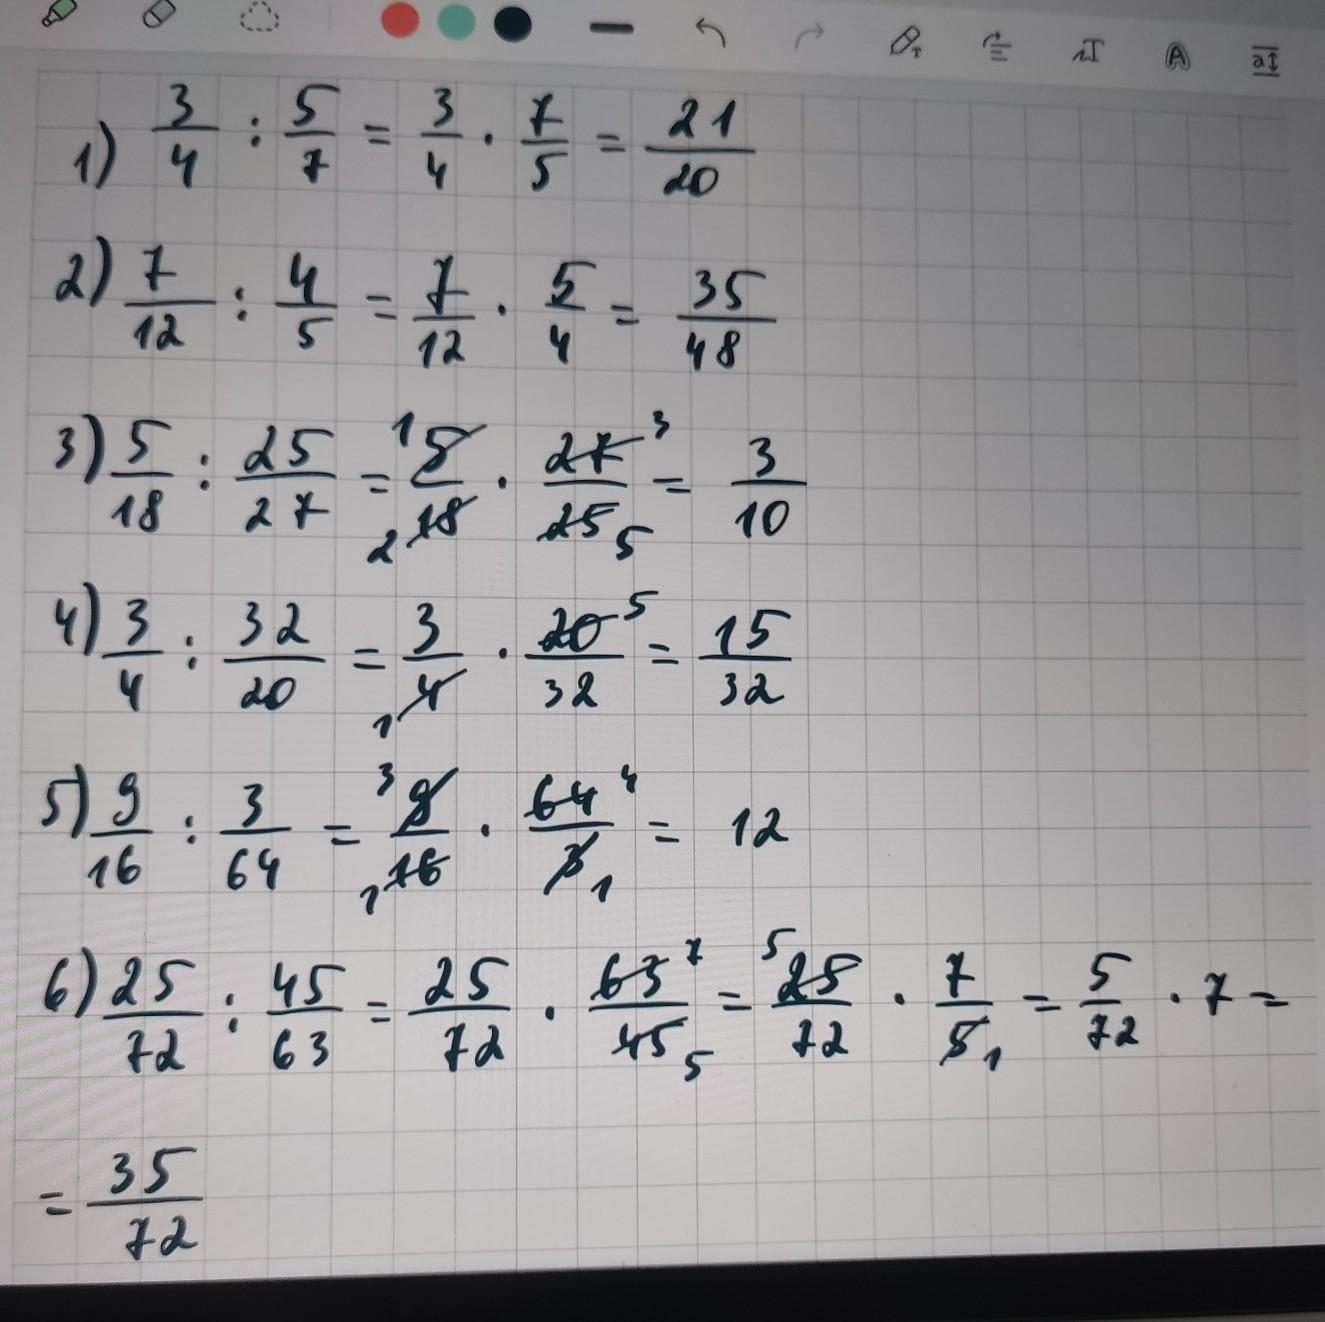 1) 3/4 : 5/7 = 3/4 · 7/5 = 21/20
2) 7/12 : 4/5 = 7/12 · 5/4 = 35/48
3) 5/18 : 25/27 = 1 5/18 2 · 27 3/25 5 = 3/10
4) 3/4 : 32/20 = 3/4 1 · 20 5/32 = 15/32
5) 9/16 : 3/64 = 3 9/16 1 · 64 4/3 1 = 12
6) 25/72 : 45/63 = 25/72 · 63 7/45 5 = 5 25/72 · 7/5 1 = 5/72 · 7 =
= 35/72